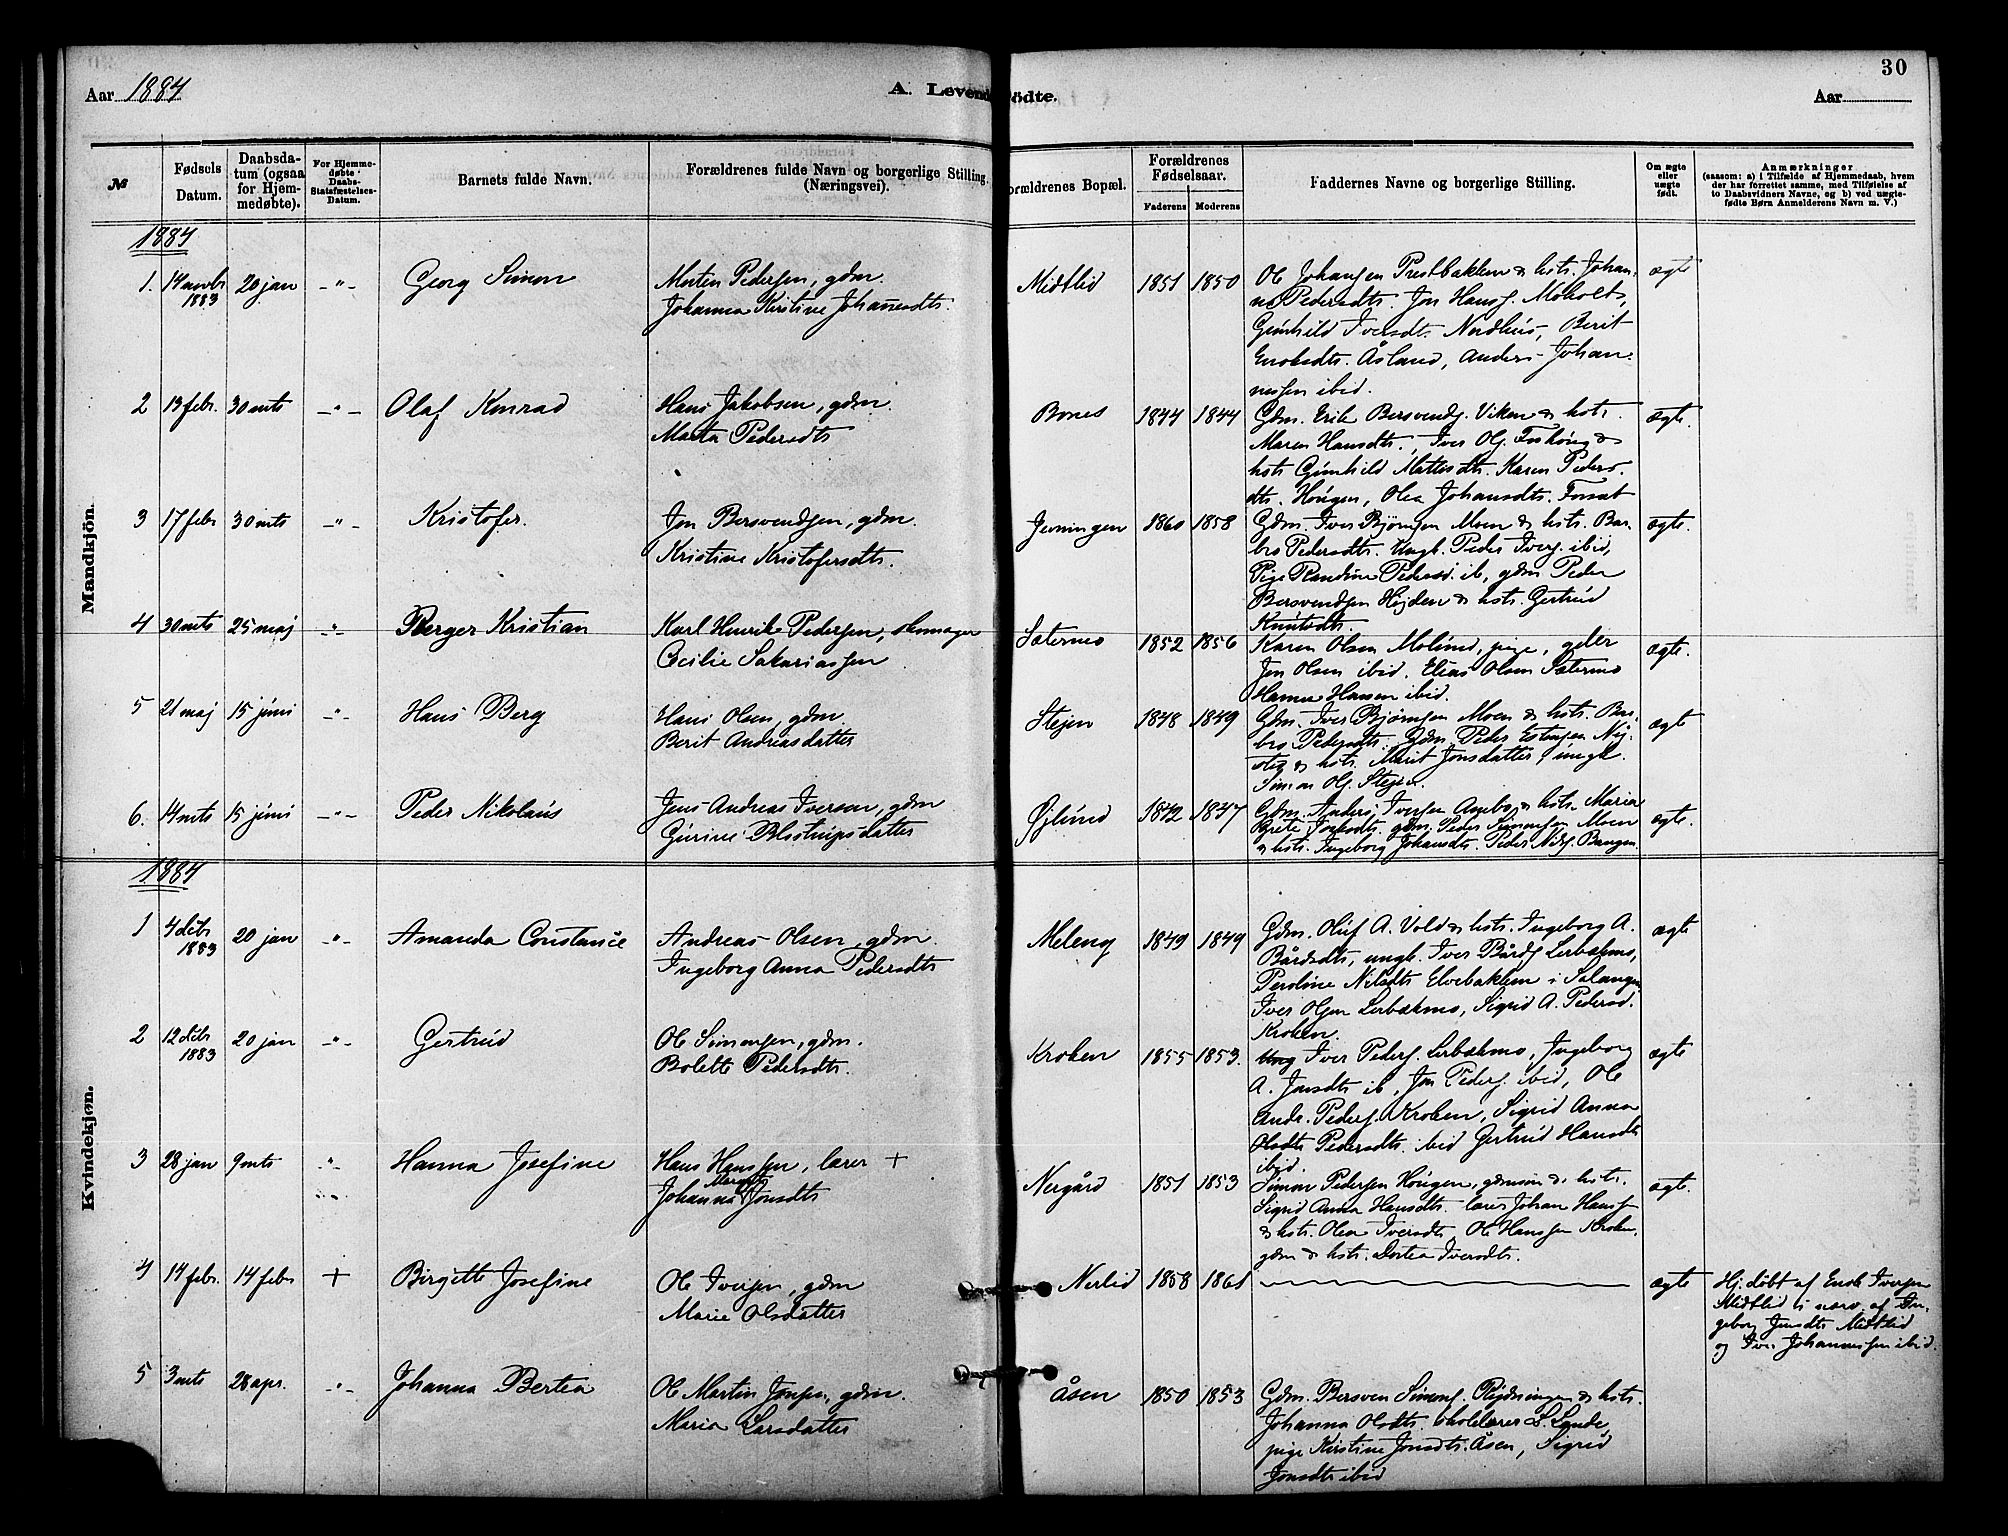 30
Aar 1884 A. Levende Fødte. Aar
№ Fødsels Datum. Daabsdatum (ogsaa for Hjemmedøbte). For Hjemmedøbte Daabs-Statsfæstelses-Datum. Barnets fulde Navn. Forældrenes fulde Navn og borgerlige Stilling. (Næringsvei). Forældrenes Bopæl. Forældrenes Fødselsaar. Faderens Moderens Faddernes Navne og borgerlige Stilling. Om ægte eller uægte født. Anmærkninger (saasom: a) i Tilfælde af Hjemmedaab, hvem der har forrettet samme, med Tilføielse af to Daabsvidners Navne, og b) ved uægtefødte Børn Anmelderens Navn m. V.)
Mandkjön.
1884
1. 14 novbr 1883 20 jan -"- Georg Simon
Morten Pedersen, gdm.
Johanna Kirstine Johannesdtr.
Midtlid 1851 1850
Ole Johansen Prestbakken & hstr. Johan-
na Pedersdtr. Jon Hansf. Moholt,
Gunhild Iversdtr. Nordhus, Berit
Enoksdtr. Åsland, Anders Johan-
nessen ibid.
ægte
2 13 febr. 30 mts -"- Olaf Konrad
Hans Jakobsen, gdm.
Marta Pedersdtr
Bones 1844 1844
Gdm. Erik Bersvends. Viken & hstr.
Maren Hansdtr., Iver Ols. Foshoug &
hstr Gunhild Mattisdtr. Karen Peders-
dtr. Hougen, Olea Johansdtr. Fosset
ægte.
3 17 febr 30 mts -"- Kristofer.
Jon Bersvendsen, gdm.
Kristine Kristofersdtr.
Jevningen 1860 1858
Gdm. Iver Bjørnsen Moen & hstr. Bar-
bro Pedersdtr. Ungk. Peder Ivers. ibid,
Pige Randine Pedersd. ib, gdm Peder
Bersvendsen Hejden & hstr. Gertrud
Knutsdtr.
ægte.
4 30 mts 25 maj -"- Berger Kristian
Karl Henrik Pedersen, skomager
Cecilie Sakariassen
Sætermo 1852 1856
Karen Olsen Molund, pige, gdm
Jon Olsen ibid. Elias Olsen Sætermo
Hanna Hansen ibid.
ægte.
5 21 maj 15 juni -"- Hans Berg
Hans Olsen, gdm.
Berit Andreasdatter
Stejen 1848 1849
Gdm. Iver Bjørnsen Moen & hstr. Bar-
bro Pedersdtr. Gdm. Peder Estensen Ny-
& hstr. Marit Jonsdatter, ungk.
Simon Ols. Stejen
ægte
6. 14 mts 15 juni -"- Peder Nikolaus
Jens Andreas Iversen, gdm
Gurine
Øjlund 1842 1847
Gdm. Anders Iversen & hstr. Maria
gdm. Peder Simonsen Moen
& hstr. Ingeborg Johansdtr. Peder Nils.
ægte.
Kvindekjøn.
1884
1 4 decbr 1883 20 jan -"- Amanda Constance
Andreas Olsen, gdm.
Ingeborg Anna Pedersdtr
Meleng 1849 1849
Gdm. Oluf A. Vold & hstr. Ingeborg A.
Bårdsdtr, ungk. Iver Bårds. Lerbakmo,
Peroline Nilsdtr Elvebakken i Salangen
Iver Olsen Lerbakmo, Sigrid A. Pedersd.
Kroken.
ægte
2 12 decbr 1883 20 jan -"- Gertrud
Ole Simonsen, gdm.
Bolette Pedersdtr.
Kroken 1855 1853.
Iver Peders. Lerbakmo, Ingeborg
A. Jonsdtr ib, Jon Peders. ibid, Ole
Andr. Peders. Kroken, Sigrid Anna
Pedersdtr. ibid Gertrud Hansdtr
ibid.
ægte
3 28 jan 9 mts -"- Hanna Josefine
Hans Hanssen, lærer +
Johanna Jonsdtr
Nergård 1851 1853
Simon Pedersen Hougen, gdm & hstr.
Sigrid Anna Hansdtr. lærer Johan Hans.
& hstr. Olea Iversdtr. Ole Hanssen Kroken
gdm & hstr. Dortea Iversdtr.
ægte.
4 14 febr. 14 febr + Birgitte Josefine
Ole Iversen, gdm
Marie Olsdatter
Nerlid 1858 1861 ægte
Hj. døbt af Enok Iversen
Midtlid i nærv. af In-
geborg Jonsdtr Midtlid
og Iver Johannessen ibid.
5 3 mts 28 apr. -"- Johanna Bertea
Ole Martin Jonsen, gdm.
Maria Larsdatter
Åsen 1850 1853
Gdm. Bersven Simons. Rydningen & hstr.
Johanna Olsdtr. skolelærer L. Lunde
pige Kirstine Jonsdtr. Åsen, Sigrid
Jonsdtr ibid